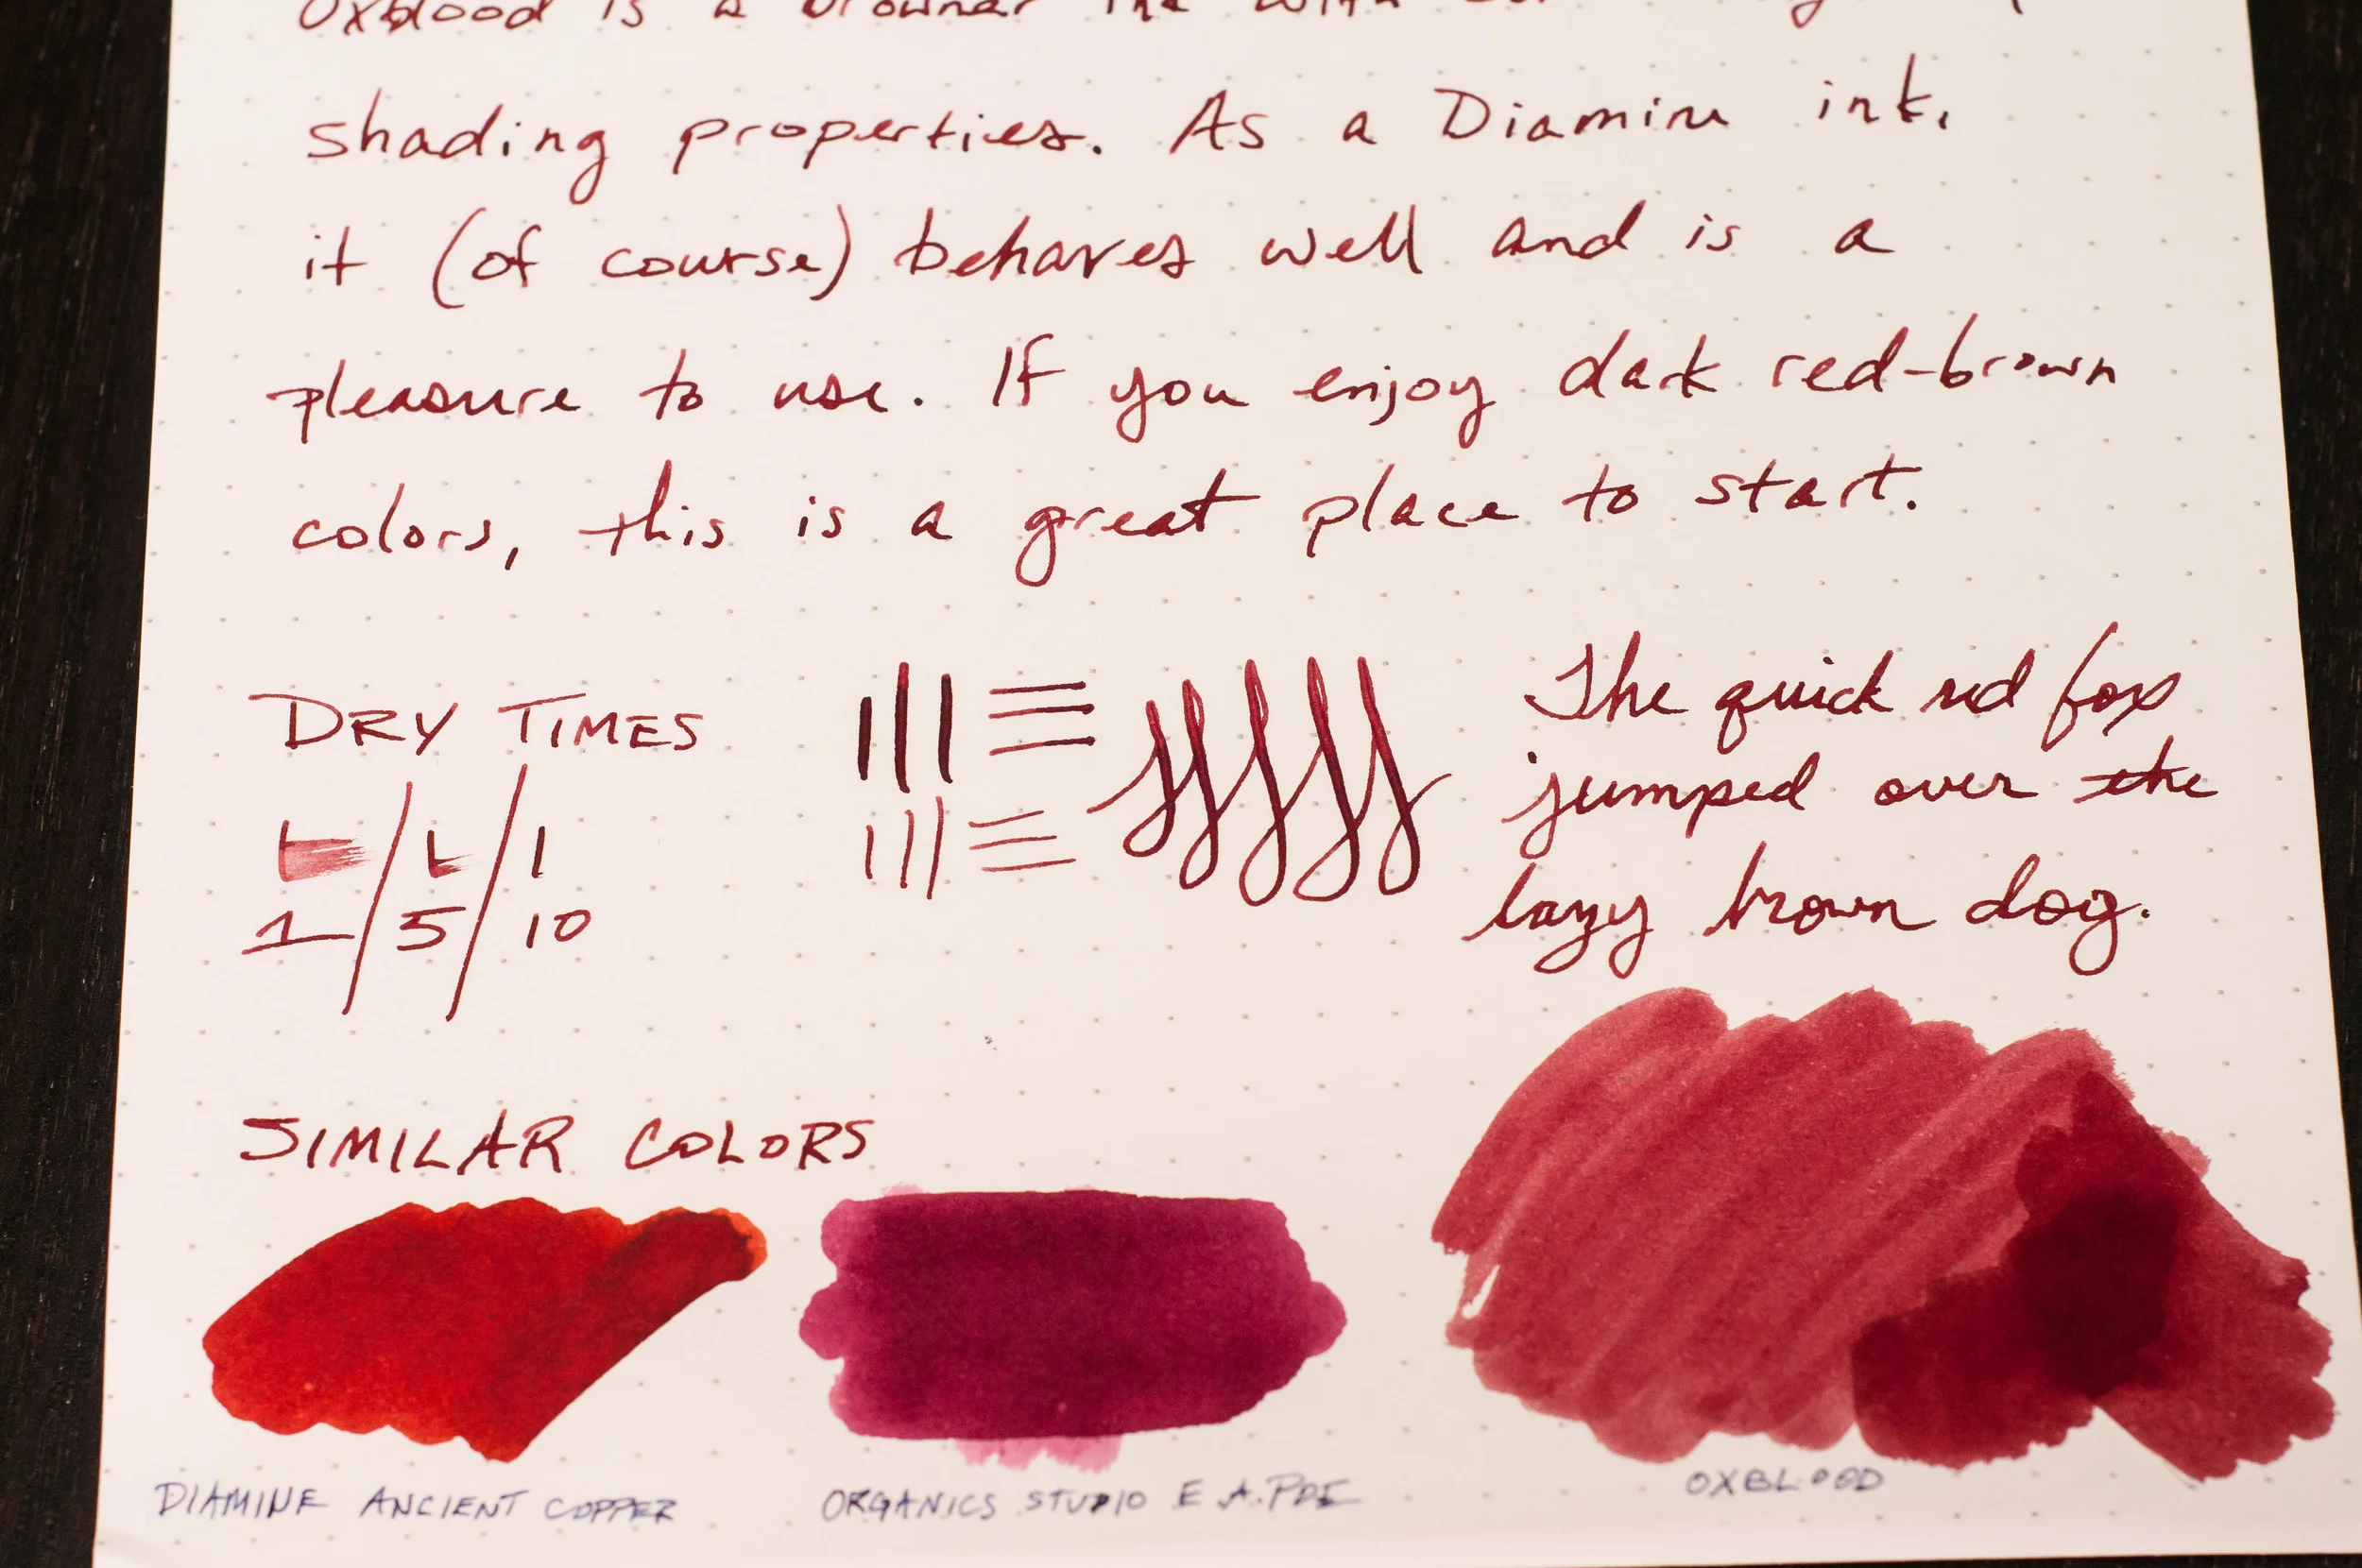 Oxblood is a browner ink with
shading properties. As a Diamine ink,
it (of course) behaves well and is a
pleasure to use. If you enjoy dark red-brown
colors, this is a great place to start.
DRY TIMES
1 / 5 / 10
The quick red fox
jumped over the
lazy brown dog.
SIMILAR COLORS
DIAMINE ANCIENT COPPER
ORGANICS STUDIO E.A. POE
OXBLOOD